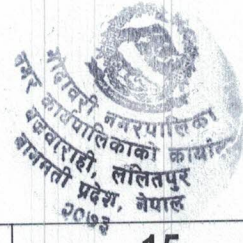 गोदावरी नगरपालिका
नगर कार्यपालिकाको कार्यालय
बज्रवाराही, ललितपुर
बागमती प्रदेश, नेपाल
२०७३
15